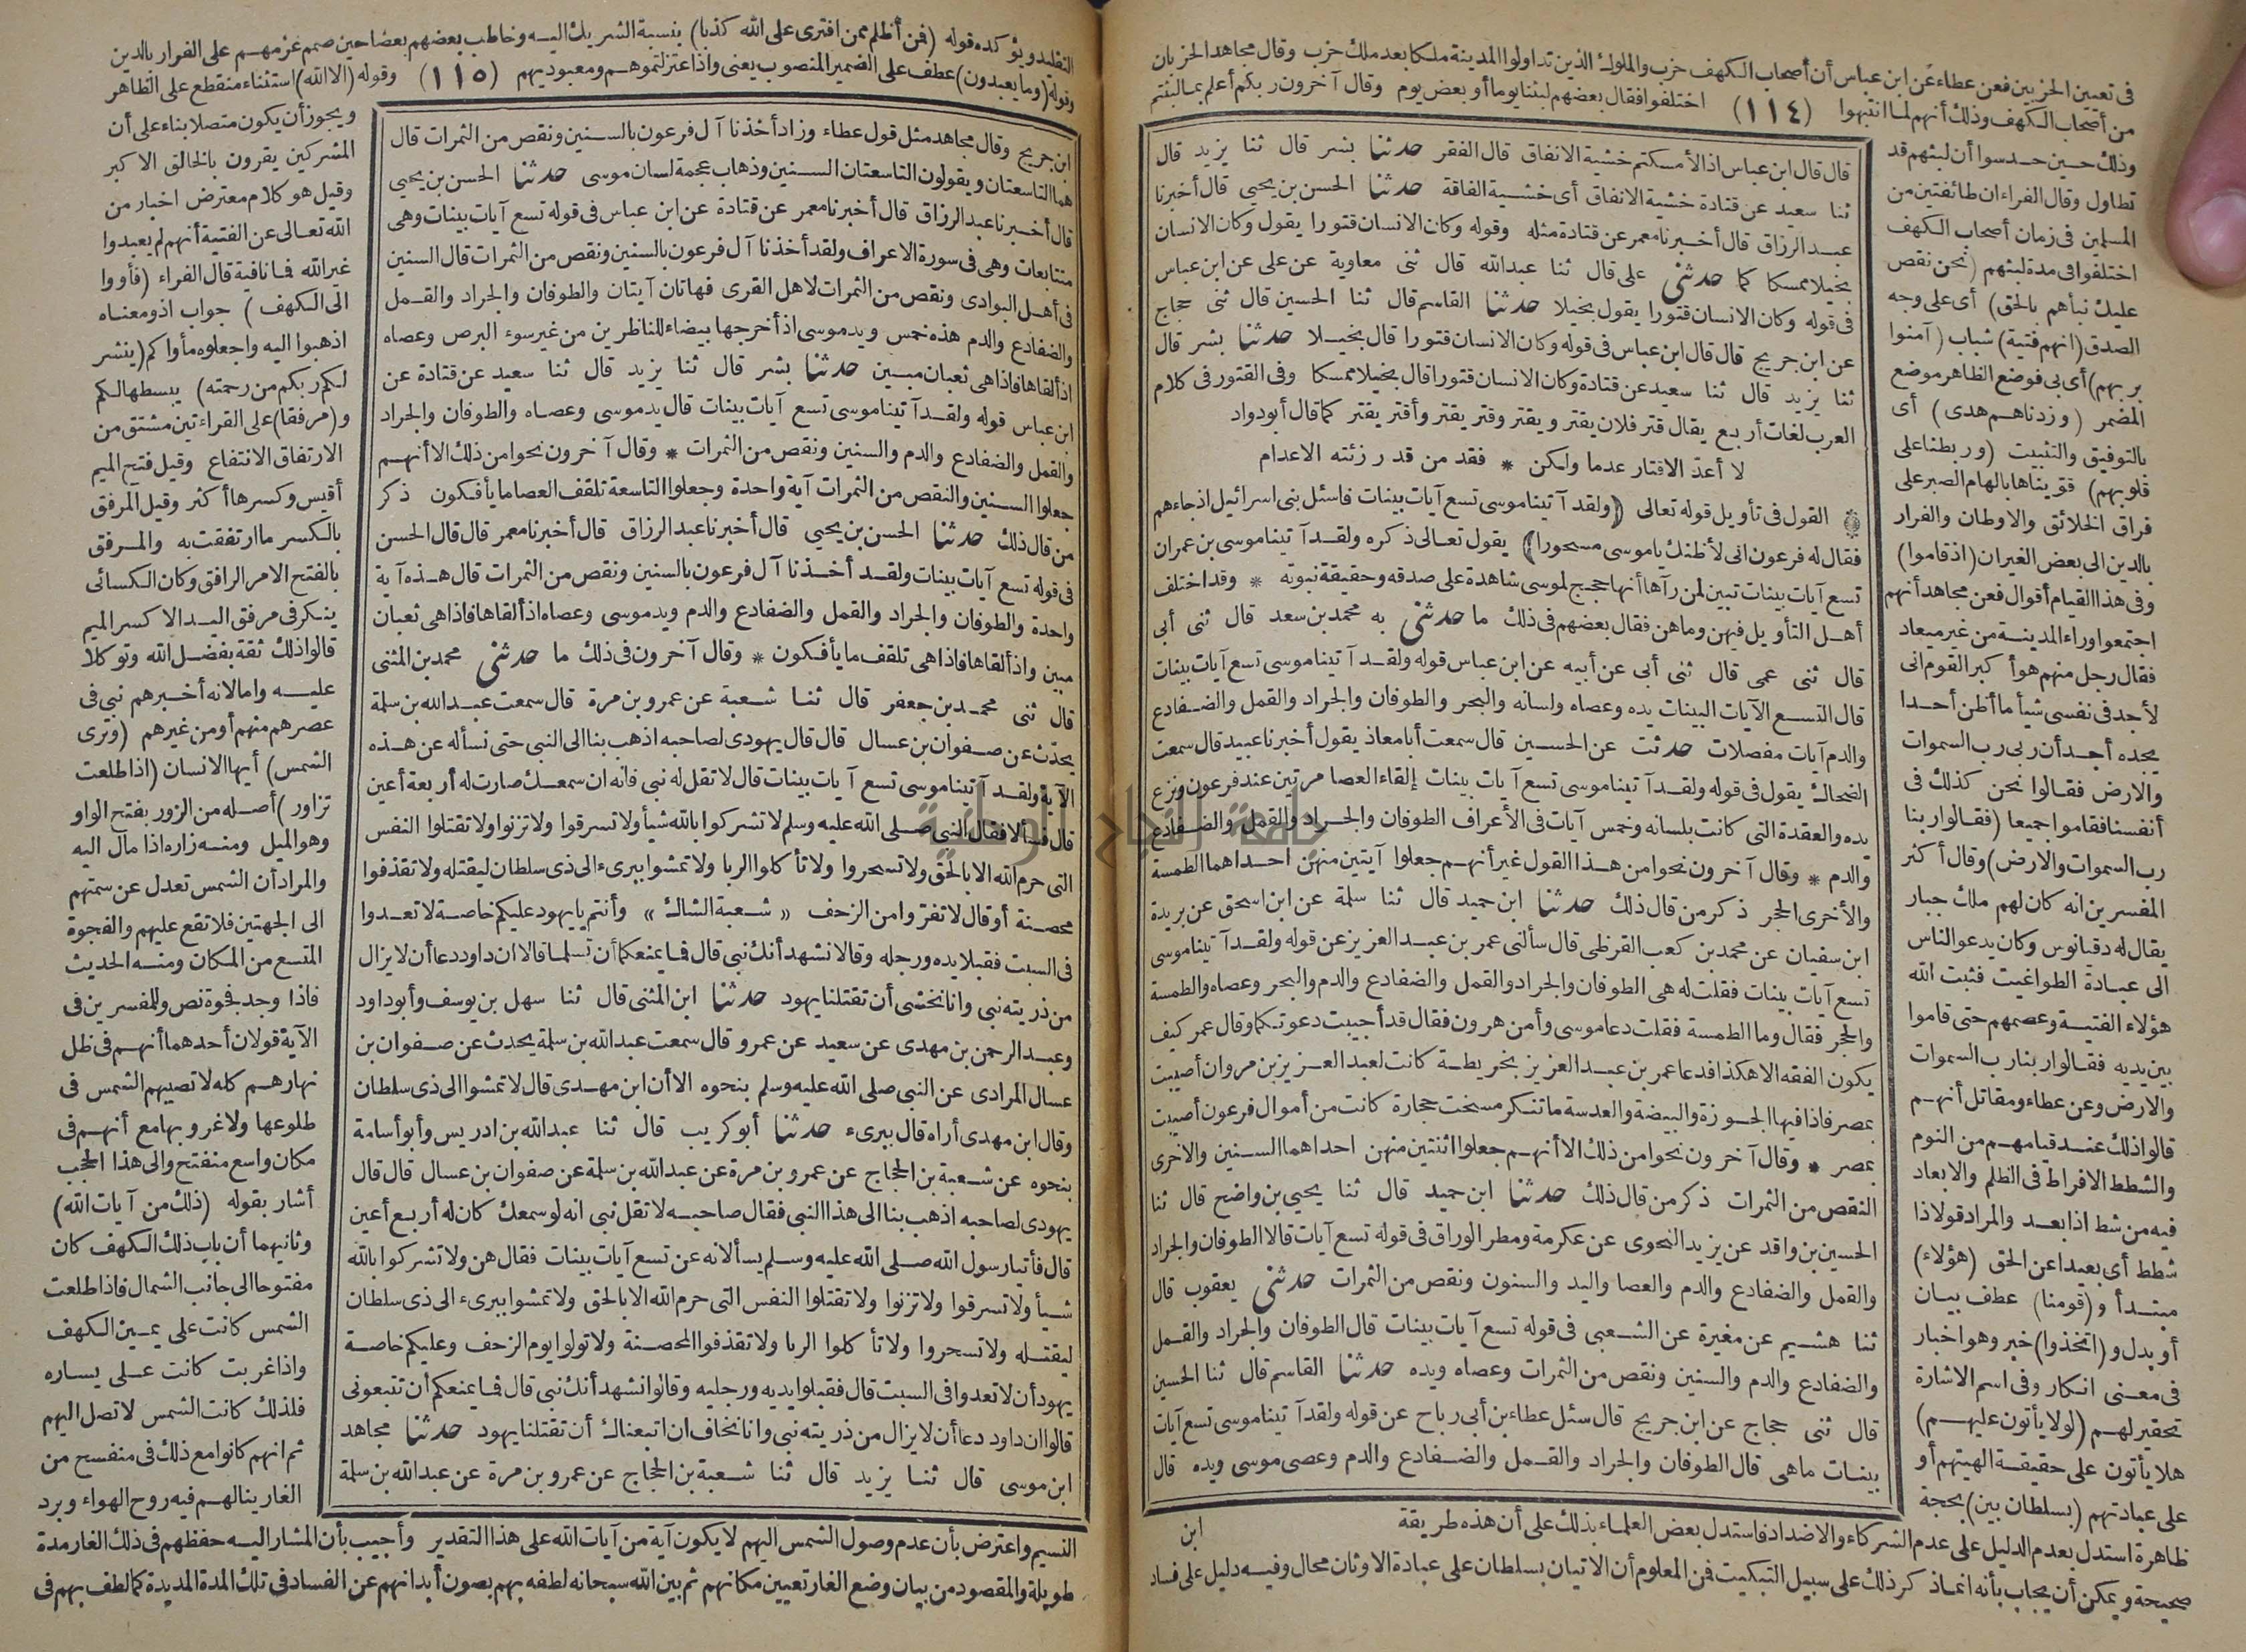 فى تعيين الحزبين فعن عطاء عن ابن عباس أن أصحاب الكهف حزب والملوك الذين تداولوا المدينة ملكا بعد ملك حزب وقال مجاهد الحزبان
من أصحاب الكهف وذلك أنهم لما انتبهوا (١١٤) اختلفوا فقال بعضهم لبثنا يوما أو بعض يوم وقال آخرون ربكم أعلم بما لبثتم
وذلك حين حدسوا أن لبثهم قد
تطاول وقال الفراء ان طائفتين من
المسلمين فى زمان أصحاب الكهف
اختلفوا فى مدة لبثهم (نحن نقص
عليك نبأهم بالحق) أى على وجه
الصدق (انهم فتية) شباب (آمنوا
بربهم) أى بى فوضع الظاهر موضع
المضمر (وزدناهم هدى) أى
بالتوفيق والتثبيت (وربطنا على
قلوبهم) قويناها بالهام الصبر على
فراق الخلائق والاوطان والفرار
بالدين الى بعض الغيران (اذ قاموا)
وفى هذا القيام أقوال فعن مجاهد أنهم
اجتمعوا وراء المدينة من غير ميعاد
فقال رجل منهم هو أكبر القوم انى
لأجد فى نفسى شيأ ما أظن أحدا
يجده أجد أن ربى رب السموات
والارض فقالوا نحن كذلك فى
أنفسنا فقاموا جميعا (فقالوا ربنا
رب السموات والارض) وقال أكثر
المفسرين انه كان لهم ملك جبار
يقال له دقيانوس وكان يدعو الناس
الى عبادة الطواغيت فثبت الله
هؤلاء الفتية وعصمهم حتى قاموا
بين يديه فقالوا ربنا رب السموات
والارض وعن عطاء ومقاتل أنهم
قالوا ذلك عند قيامهم من النوم
والشطط الافراط فى الظلم والابعاد
فيه من شط اذا بعد والمراد قولا ذا
شطط أى بعيدا عن الحق (هؤلاء)
مبتدأ و(قومنا) عطف بيان
أو بدل و(اتخذوا) خبر وهو اخبار
فى معنى انكار وفى اسم الاشارة
تحقير لهم (لولا يأتون عليهم)
هلا يأتون على حقيقة الهيتهم أو
على عبادتهم (بسلطان بين) بحجة
قال قال ابن عباس اذا لأمسكتم خشية الانفاق قال الفقر حدثنا بشر قال ثنا يزيد قال
ثنا سعيد عن قتادة خشية الانفاق أى خشية الفاقة حدثنا الحسن بن يحيى قال أخبرنا
عبد الرزاق قال أخبرنا معمر عن قتادة مثله وقوله وكان الانسان قتورا يقول وكان الانسان
بخيلا ممسكا كما حدثنى على قال ثنا عبد الله قال ثنى معاوية عن على عن ابن عباس
فى قوله وكان الانسان قتورا يقول بخيلا حدثنا القاسم قال ثنا الحسين قال ثنى حجاج
عن ابن جريج قال قال ابن عباس فى قوله وكان الانسان قتورا قال بخيلا حدثنا بشر قال
ثنا يزيد قال ثنا سعيد عن قتادة وكان الانسان قتورا قال بخيلا ممسكا وفى القتور فى كلام
العرب لغات أربع يقال قتر فلان يقتر ويقتر وقتر يقتر وأقتر يقتر كما قال أبو دواد
لا أعد الاقتار عدما ولكن * فقد من قد رزئته الاعدام
القول فى تأويل قوله تعالى (ولقد آتينا موسى تسع آيات بينات فاسئل بنى اسرائيل اذ جاءهم
فقال له فرعون انى لأظنك ياموسى مسحورا) يقول تعالى ذكره ولقد آتينا موسى بن عمران
تسع آيات بينات تبين لمن رآها أنها حجج لموسى شاهدة على صدقه وحقيقة نبوته * وقد اختلف
أهل التأويل فيهن وما هن فقال بعضهم فى ذلك ما حدثنى به محمد بن سعد قال ثنى أبى
قال ثنى عمى قال ثنى أبى عن أبيه عن ابن عباس قوله ولقد آتينا موسى تسع آيات بينات
قال التسع الآيات البينات يده وعصاه ولسانه والبحر والطوفان والجراد والقمل والضفادع
والدم آيات مفصلات حدثت عن الحسين قال سمعت أبا معاذ يقول أخبرنا عبيد قال سمعت
الضحاك يقول فى قوله ولقد آتينا موسى تسع آيات بينات إلقاء العصا مرتين عند فرعون ونزع
يده والعقدة التى كانت بلسانه وخمس آيات فى الأعراف الطوفان والجراد والقمل والضفادع
والدم * وقال آخرون نحوا من هذا القول غير أنهم جعلوا آيتين منهن احداهما الطمسة
والأخرى الحجر ذكر من قال ذلك حدثنا ابن حميد قال ثنا سلمة عن ابن اسحق عن بريدة
ابن سفيان عن محمد بن كعب القرظى قال سألنى عمر بن عبد العزيز عن قوله ولقد آتينا موسى
تسع آيات بينات فقلت له هى الطوفان والجراد والقمل والضفادع والدم والبحر وعصاه والطمسة
والحجر فقال وما الطمسة فقلت دعا موسى وأمن هرون فقال قد أجيبت دعوتكما وقال عمر كيف
يكون الفقه الا هكذا فدعا عمر بن عبد العزيز بخريطة كانت لعبد العزيز بن مروان أصيبت
بمصر فاذا فيها الجوزة والبيضة والعدسة ما تنكر مسخت حجارة كانت من أموال فرعون أصيبت
بمصر * وقال آخرون نحوا من ذلك الا أنهم جعلوا اثنتين منهن احداهما السنين والاخرى
النقص من الثمرات ذكر من قال ذلك حدثنا ابن حميد قال ثنا يحيى بن واضح قال ثنا
الحسين بن واقد عن يزيد النحوى عن عكرمة ومطر الوراق فى قوله تسع آيات قالا الطوفان والجراد
والقمل والضفادع والدم والعصا واليد والسنون ونقص من الثمرات حدثنى يعقوب قال
ثنا هشيم عن مغيرة عن الشعبى فى قوله تسع آيات بينات قال الطوفان والجراد والقمل
والضفادع والدم والسنين ونقص من الثمرات وعصاه ويده حدثنا القاسم قال ثنا الحسين
قال ثنى حجاج عن ابن جريج قال سئل عطاء بن أبى رباح عن قوله ولقد آتينا موسى تسع آيات
بينات ما هى قال الطوفان والجراد والقمل والضفادع والدم وعصى موسى ويده قال
ابن
ظاهرة استدل بعدم الدليل على عدم الشركاء والاضداد فاستدل بعض العلماء بذلك على أن هذه طريقة
صحيحة ويمكن أن يجاب بأنه انما ذكر ذلك على سبيل التبكيت فمن المعلوم أن الاتيان بسلطان على عبادة الاوثان محال وفيه دليل على فساد
التقليد ويؤكده قوله (فمن أظلم ممن افترى على الله كذبا) بنسبة الشريك اليه وخاطب بعضهم بعضا حين صمم عزمهم على الفرار بالدين
وقوله (وما يعبدون) عطف على الضمير المنصوب يعنى واذ اعتزلتموهم ومعبوديهم (١١٥) وقوله (الا الله) استثناء منقطع على الظاهر
ويجوز أن يكون متصلا بناء على أن
المشركين يقرون بالخالق الاكبر
وقيل هو كلام معترض اخبار من
الله تعالى عن الفتية أنهم لم يعبدوا
غير الله فما نافية قال الفراء (فأووا
الى الكهف) جواب اذ ومعناه
اذهبوا اليه واجعلوه مأواكم (ينشر
لكم ربكم من رحمته) يبسطها لكم
و(مرفقا) على القراءتين مشتق من
الارتفاق الانتفاع وقيل فتح الميم
أقيس وكسرها أكثر وقيل المرفق
بالكسر ما ارتفقت به والمرفق
بالفتح الامر الرافق وكان الكسائى
ينكر فى مرفق اليد الا كسر الميم
قالوا ذلك ثقة بفضل الله وتوكلا
عليه واما لانه أخبرهم نبى فى
عصرهم منهم أو من غيرهم (وترى
الشمس) أيها الانسان (اذا طلعت
تزاور) أصله من الزور بفتح الواو
وهو الميل ومنه زاره اذا مال اليه
والمراد أن الشمس تعدل عن سمتهم
الى الجهتين فلا تقع عليهم والفجوة
المتسع من المكان ومنه الحديث
فاذا وجد فجوة نص وللمفسرين فى
الآية قولان أحدهما أنهم فى ظل
نهارهم كله لا تصيبهم الشمس فى
طلوعها ولا غروبها مع أنهم فى
مكان واسع منفتح والى هذا الحجب
أشار بقوله (ذلك من آيات الله)
وثانيهما أن باب ذلك الكهف كان
مفتوحا الى جانب الشمال فاذا طلعت
الشمس كانت على يمين الكهف
واذا غربت كانت على يساره
فلذلك كانت الشمس لا تصل اليهم
ثم انهم كانوا مع ذلك فى منفسح من
الغار ينالهم فيه روح الهواء وبرد
ابن جريج وقال مجاهد مثل قول عطاء وزاد أخذنا آل فرعون بالسنين ونقص من الثمرات قال
هما التاسعتان ويقولون التاسعتان السنين وذهاب عجمة لسان موسى حدثنا الحسن بن يحيى
قال أخبرنا عبد الرزاق قال أخبرنا معمر عن قتادة عن ابن عباس فى قوله تسع آيات بينات وهى
متتابعات وهى فى سورة الاعراف ولقد أخذنا آل فرعون بالسنين ونقص من الثمرات قال السنين
فى أهل البوادى ونقص من الثمرات لاهل القرى فهاتان آيتان والطوفان والجراد والقمل
والضفادع والدم هذه خمس ويد موسى اذ أخرجها بيضاء للناظرين من غير سوء البرص وعصاه
اذ ألقاها فاذا هى ثعبان مبين حدثنا بشر قال ثنا يزيد قال ثنا سعيد عن قتادة عن
ابن عباس قوله ولقد آتينا موسى تسع آيات بينات قال يد موسى وعصاه والطوفان والجراد
والقمل والضفادع والدم والسنين ونقص من الثمرات * وقال آخرون نحوا من ذلك الا أنهم
جعلوا السنين والنقص من الثمرات آية واحدة وجعلوا التاسعة تلقف العصا ما يأفكون ذكر
من قال ذلك حدثنا الحسن بن يحيى قال أخبرنا عبد الرزاق قال أخبرنا معمر قال قال الحسن
فى قوله تسع آيات بينات ولقد أخذنا آل فرعون بالسنين ونقص من الثمرات قال هذه آية
واحدة والطوفان والجراد والقمل والضفادع والدم ويد موسى وعصاه اذ ألقاها فاذا هى ثعبان
مبين واذ ألقاها فاذا هى تلقف ما يأفكون * وقال آخرون فى ذلك ما حدثنى محمد بن المثنى
قال ثنى محمد بن جعفر قال ثنا شعبة عن عمرو بن مرة قال سمعت عبد الله بن سلمة
يحدث عن صفوان بن عسال قال قال يهودى لصاحبه اذهب بنا الى النبى حتى نسأله عن هذه
الآية ولقد آتينا موسى تسع آيات بينات قال لا تقل له نبى فانه ان سمعك صارت له أربعة أعين
قال فسألا فقال النبى صلى الله عليه وسلم لا تشركوا بالله شيأ ولا تسرقوا ولا تزنوا ولا تقتلوا النفس
التى حرم الله الا بالحق ولا تسحروا ولا تأكلوا الربا ولا تمشوا ببرىء الى ذى سلطان ليقتله ولا تقذفوا
محصنة أو قال لا تفروا من الزحف «شعبة الشاك» وأنتم يا يهود عليكم خاصة لا تعدوا
فى السبت فقبلا يده ورجله وقالا نشهد أنك نبى قال فما يمنعكما أن تسلما قالا ان داود دعا أن لا يزال
من ذريته نبى وانا نخشى أن تقتلنا يهود حدثنا ابن المثنى قال ثنا سهل بن يوسف وأبو داود
وعبد الرحمن بن مهدى عن سعيد عن عمرو قال سمعت عبد الله بن سلمة يحدث عن صفوان بن
عسال المرادى عن النبى صلى الله عليه وسلم بنحوه الا أن ابن مهدى قال لا تمشوا الى ذى سلطان
وقال ابن مهدى أراه قال ببرىء حدثنا أبو كريب قال ثنا عبد الله بن ادريس وأبو أسامة
بنحوه عن شعبة بن الحجاج عن عمرو بن مرة عن عبد الله بن سلمة عن صفوان بن عسال قال قال
يهودى لصاحبه اذهب بنا الى هذا النبى فقال صاحبه لا تقل نبى انه لو سمعك كان له أربع أعين
قال فأتيا رسول الله صلى الله عليه وسلم يسألانه عن تسع آيات بينات فقال هن ولا تشركوا بالله
شيأ ولا تسرقوا ولا تزنوا ولا تقتلوا النفس التى حرم الله الا بالحق ولا تمشوا ببرىء الى ذى سلطان
ليقتله ولا تسحروا ولا تأكلوا الربا ولا تقذفوا المحصنة ولا تولوا يوم الزحف وعليكم خاصة
يهود أن لا تعدوا فى السبت قال فقبلوا يديه ورجليه وقالوا نشهد أنك نبى قال فما يمنعكم أن تتبعونى
قالوا ان داود دعا أن لا يزال من ذريته نبى وانا نخاف ان اتبعناك أن تقتلنا يهود حدثنا مجاهد
ابن موسى قال ثنا يزيد قال ثنا شعبة بن الحجاج عن عمرو بن مرة عن عبد الله بن سلمة
النسيم واعترض بأن عدم وصول الشمس اليهم لا يكون آية من آيات الله على هذا التقدير وأجيب بأن المشار اليه حفظهم فى ذلك الغار مدة
طويلة والمقصود من بيان وضع الغار تعيين مكانهم ثم بين الله سبحانه لطفه بهم بصون أبدانهم عن الفساد فى تلك المدة المديدة كما لطف بهم فى
جامعة النجاح الوطنية